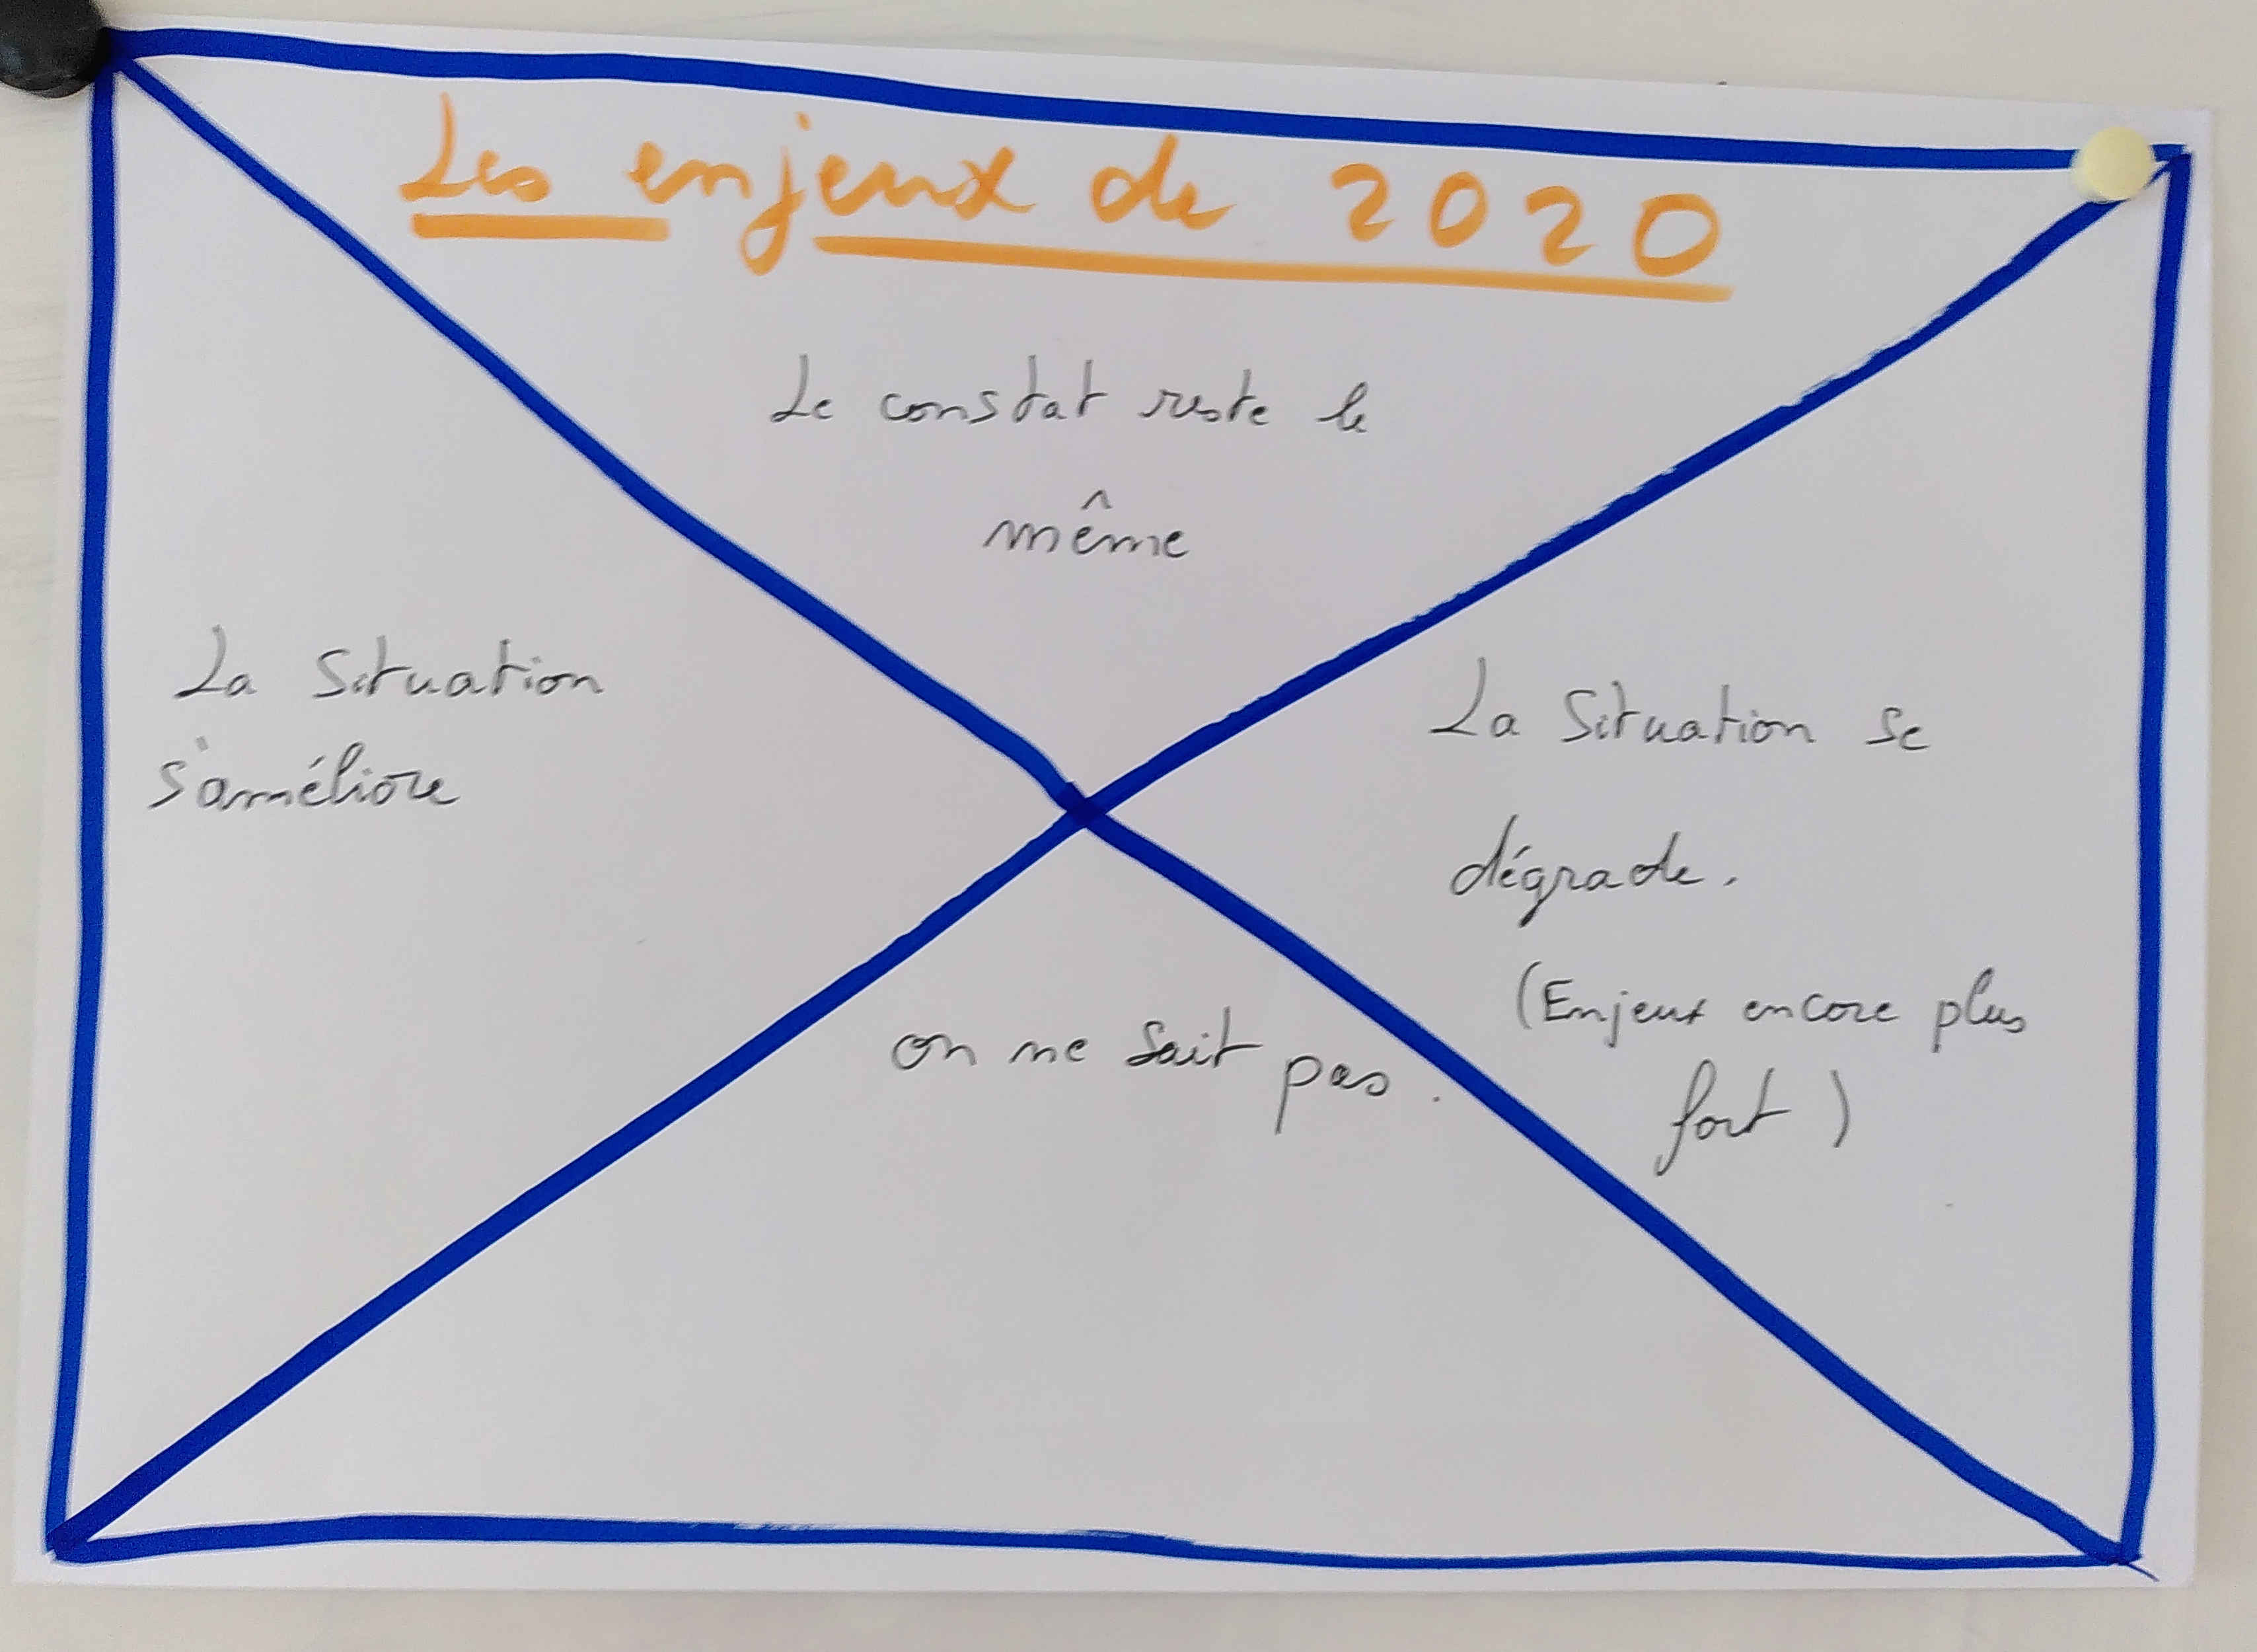 Les enjeux de 2020
Le constat reste le
même
La situation
s'améliore
La situation se
dégrade.
(Enjeux encore plus
fort)
on ne sait pas.